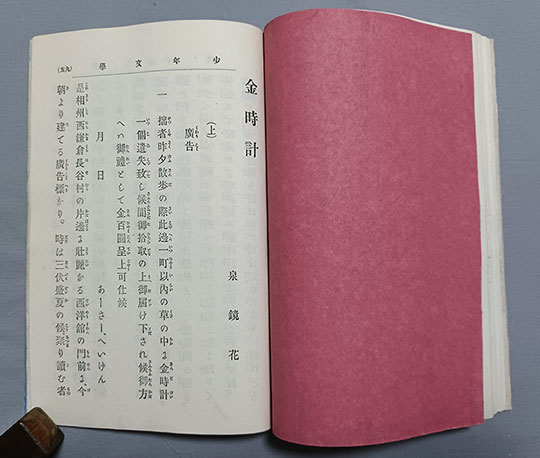 少年文學
(九五)
金時計
泉鏡花
(上)
廣告
一 拙者昨夕散歩の際此邊一町以內の草の中に金時計
一個遺失致し候間御拾取の上御届け下され候御方
へハ御禮として金百圓呈上可仕候
月 日 あーさー、へいげん
是相州西鎌倉長谷村の片邊に壯麗なる西洋舘の門前に、今
朝より建てる廣告標なり。時は三伏盛夏の候聚り讀む者